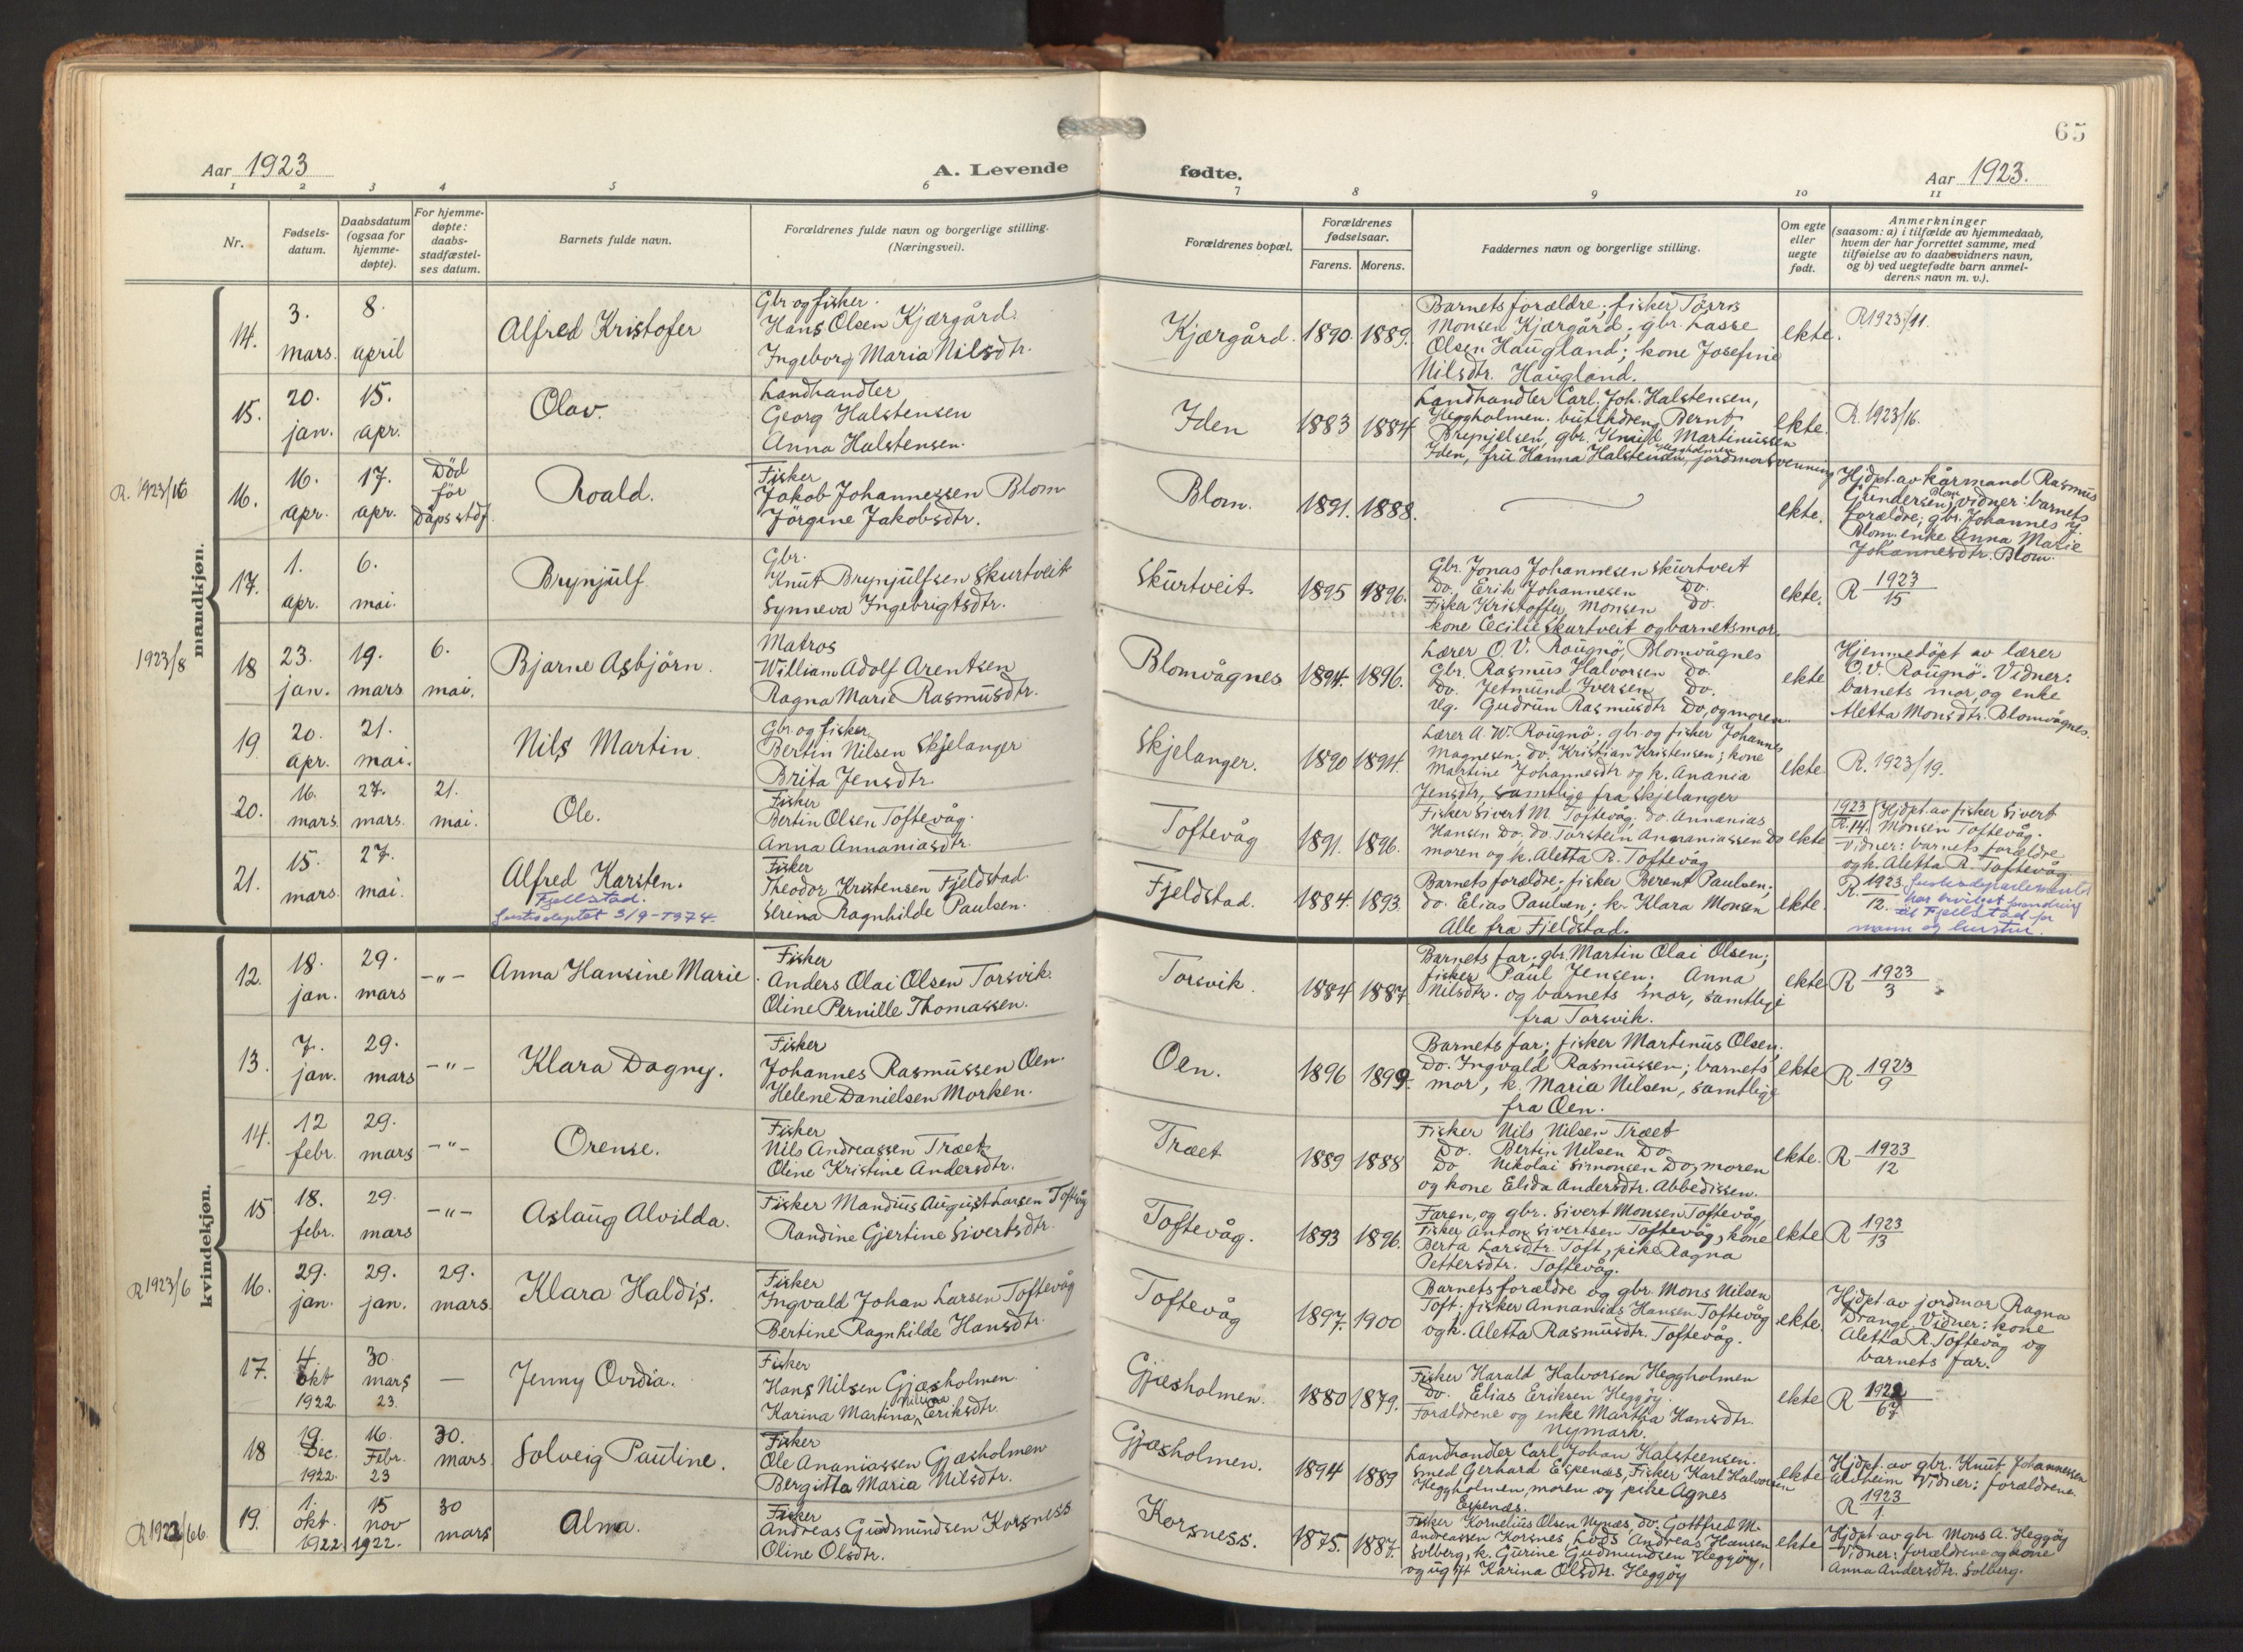 65
Aar 1923
A. Levende fødte.
Aar 1923.
1 2 3 4 5 6 7 8 9 10 11
Nr.
Fødsels-
datum.
Daabsdatum
(ogsaa for
hjemme-
døpte).
For hjemme-
døpte:
daabs-
stadfæstel-
ses datum.
Barnets fulde navn.
Forældrenes fulde navn og borgerlige stilling.
(Næringsvei).
Forældrenes bopæl.
Forældrenes
fødselsaar.
Farens. Morens.
Faddernes navn og borgerlige stilling.
Om egte
eller
uegte
født.
Anmerkninger
(saasom: a) i tilfælde av hjemmedaab,
hvem der har forrettet samme, med
tilføielse av to daabsvidners navn,
og b) ved uegtefødte barn anmel-
derens navn m. v.).
mandkjøn.
14.
3.
mars.
8.
april
Alfred Kristofer
Gbr og fisker.
Hans Olsen Kjærgård.
Ingeborg Maria Nilsdtr.
Kjærgård. 1890. 1889.
Barnets forældre; fisker Tørris
Monsen Kjærgård; gbr. Lasse
Olsen Haugland; kone Josefine
Nilsdtr. Haugland.
ekte.
R1923/11.
15.
20.
jan.
15.
apr.
Olav.
Landhandler
Georg Halstensen
Anna Halstensen.
Iden 1883 1884
Landhandler Carl. Joh. Halstensen,
Heggholmen. butikdreng Bernt
Brynjelsen, gbr. Knut Martinussen
Iden, fru Hanna Halstensen Heggholmen, jordmor
ekte.
R. 1923/16.
R. 1923/16
16.
16.
apr.
17.
apr.
Död
för
dåpsstdf.
Roald.
Fisker
Jakob Johannessen Blom
Jörgine Jakobsdtr.
Blom. 1891. 1888.
ekte.
Hjdpt. av kårmand Rasmus
Gundersen Blom, vidner: barnets
forældre; gbr. Johannes J.
Blom. enke Anna Marie
Johannesdtr. Blom.
17.
1.
apr.
6.
mai.
Brynjulf
Gbr.
Knut Brynjulfsen Skurtveit
Synneva Ingebrigtsdtr.
Skurtveit. 1895 1896.
Gbr. Jonas Johannesen Skurtveit
Do. Erik Johannesen Do.
Fisker Kristoffer Monsen Do.
kone Cecilie Skurtveit og barnets mor.
ekte.
R 1923
15
1923/8
18
23.
jan.
19.
mars
6.
mai.
Bjarne Asbjörn.
Matros
William Adolf Arentsen
Ragna Marie Rasmusdtr.
Blomvågnes 1894. 1896.
Lærer O. V. Rougnö, Blomvågnes
Gbr. Rasmus Halvorsen Do.
Do. Jetmund Iversen Do.
Ug. Gudrun Rasmusdtr Do, og moren.
ekte
Hjemmedöpt av lærer
O. V. Rougnö. Vidner:
barnets mor, og enke
Aletta Monsdtr. Blomvågnes.
19
20.
apr.
21.
mai.
Nils Martin.
Gbr. og fisker.
Bertin Nilsen Skjelanger
Brita Jensdtr.
Skjelanger. 1890 1894.
Lærer A. W. Rougnö. gbr. og fisker Johannes
Magnesen. do. Kristian Kristensen; kone
Martine Johannesdtr og k. Anania
Jensdtr, samtlige fra Skjelanger
ekte.
R. 1923/19.
20.
16.
mars.
27.
mars.
21.
mai.
Ole.
Fisker
Bertin Olsen Toftevåg.
Anna Annaniasdtr.
Toftevåg 1891. 1896.
Fisker Sivert M. Toftevåg; do. Annanias
Hansen do; do. Torstein Annaniassen do
moren og k. Aletta R. Toftevåg
ekte
1923
R. 14. Hjdpt. av fisker Sivert
Monsen Toftevåg.
Vidner: barnets forældre
og k. Aletta R. Toftevåg
21.
15.
mars.
27.
mai.
Alfred Karsten.
Fjellstad.
Justisdeptet 3/9-1974.
Fisker
Theodor Kristensen Fjeldstad.
Serina Ragnhilde Paulsen.
Fjeldstad. 1884. 1893.
Barnets forældre; fisker Berent Paulsen;
do. Elias Paulsen; k. Klara Monsen
Alle fra Fjeldstad.
ekte.
R. 1923
12. Justisdepartementet
har bevilget forandring
til Fjellstad for
mann og hustru.
kvindekjøn.
12.
18.
jan.
29.
mars
-„-
Anna Hansine Marie.
Fisker
Anders Olai Olsen Torsvik.
Oline Pernille Thomassen.
Torsvik. 1884 1887
Barnets far; gbr. Martin Olai Olsen;
fisker Paul Jensen; Anna
Nilsdtr. og barnets mor, samtlige
fra Torsvik.
ekte
R 1923
3
13.
7.
jan.
29.
mars
-„-
Klara Dagny.
Fisker
Johannes Rasmussen Oen.
Helene Danielsen Morken.
Oen. 1896 1899.
Barnets far; fisker Martinus Olsen;
Do. Ingvald Rasmussen; barnets
mor, k. Maria Nilsen, samtlige
fra Oen.
ekte
R 1923
9
14.
12
febr.
29.
mars
-„-
Orense.
Fisker
Nils Andreassen Træet
Oline Kristine Andersdtr.
Træet 1889 1888
Fisker Nils Nilsen Træet
Do. Bertin Nilsen Do.
Do Nikolai Simonsen Do, moren
og kone Elida Andersdtr. Abbedissen.
ekte.
R 1923
12
15
18.
febr.
29.
mars
-„-
Aslaug Alvilda.
Fisker Mandius August Larsen Toftevåg
Randine Gjertine Sivertsdtr.
Toftevåg. 1893 1896.
Faren, og gbr. Sivert Monsen Toftevåg,
Fisker Anton Sivertsen Toftevåg, kone
Berta Larsdtr. Toft, pike Ragna
Pettersdtr. Toftevåg.
ekte
R 1923
13
R1923/6
16.
29.
jan.
29.
jan.
29.
mars.
Klara Haldis.
Fisker
Ingvald Johan Larsen Toftevåg
Bertine Ragnhilde Hansdtr.
Toftevåg 1897. 1900
Barnets forældre og gbr. Mons Nilsen
Toft. fisker Annanias Hansen Toftevåg
og k. Aletta Rasmusdtr. Toftevåg.
ekte.
Hjdpt. av jordmor Ragna
Drange. Vidner: kone
Aletta R. Toftevåg og
barnets far.
17.
4
okt
1922
30.
mars
23.
—
Jenny Ovidia.
Fisker
Hans Nilsen Gjæsholmen.
Karina Martina Eriksdtr.
Gjæsholmen. 1880 1879.
Fisker Harald Halvorsen Heggholmen
Do. Elias Eriksen Heggöy.
Forældrene og enke Martha Hansdtr.
Nymark.
ekte
R 1922
67
18
19.
Dec.
1922.
16.
Febr.
23
30.
mars
Solveig Pauline.
Fisker
Ole Ananiassen Gjæsholmen
Bergitta Maria Nilsdtr.
Gjæsholmen. 1894 1889
Landhandler Carl Johan Halsteensen.
Smed Gerhard Espenæs, Fisker Karl Halvorsen
Heggholmen, moren og pike Agnes
Espenæs.
ekte
Hjdpt. av gbr. Knut Johannessen
Alvheim Vidner: forældrene.
R 1923
1
R1922/66.
19.
1.
okt.
1922
15
nov
1922.
30
mars
Alma.
Fisker
Andreas Gudmundsen Korsness
Oline Olsdtr.
Korsness. 1875. 1887.
Fisker Kornelius Olsen Nynæs, do. Gottfred M.
Andreassen Korsnes, Lods Andreas Hansen
Solberg, k. Gurine Gudmundsen Heggöy,
og ugift Karina Olsdtr. Heggöy
ekte
Hjdpt. av gbr Mons A. Heggöy
Vidner: forældrene og kone
Anna Andersdtr. Solberg.